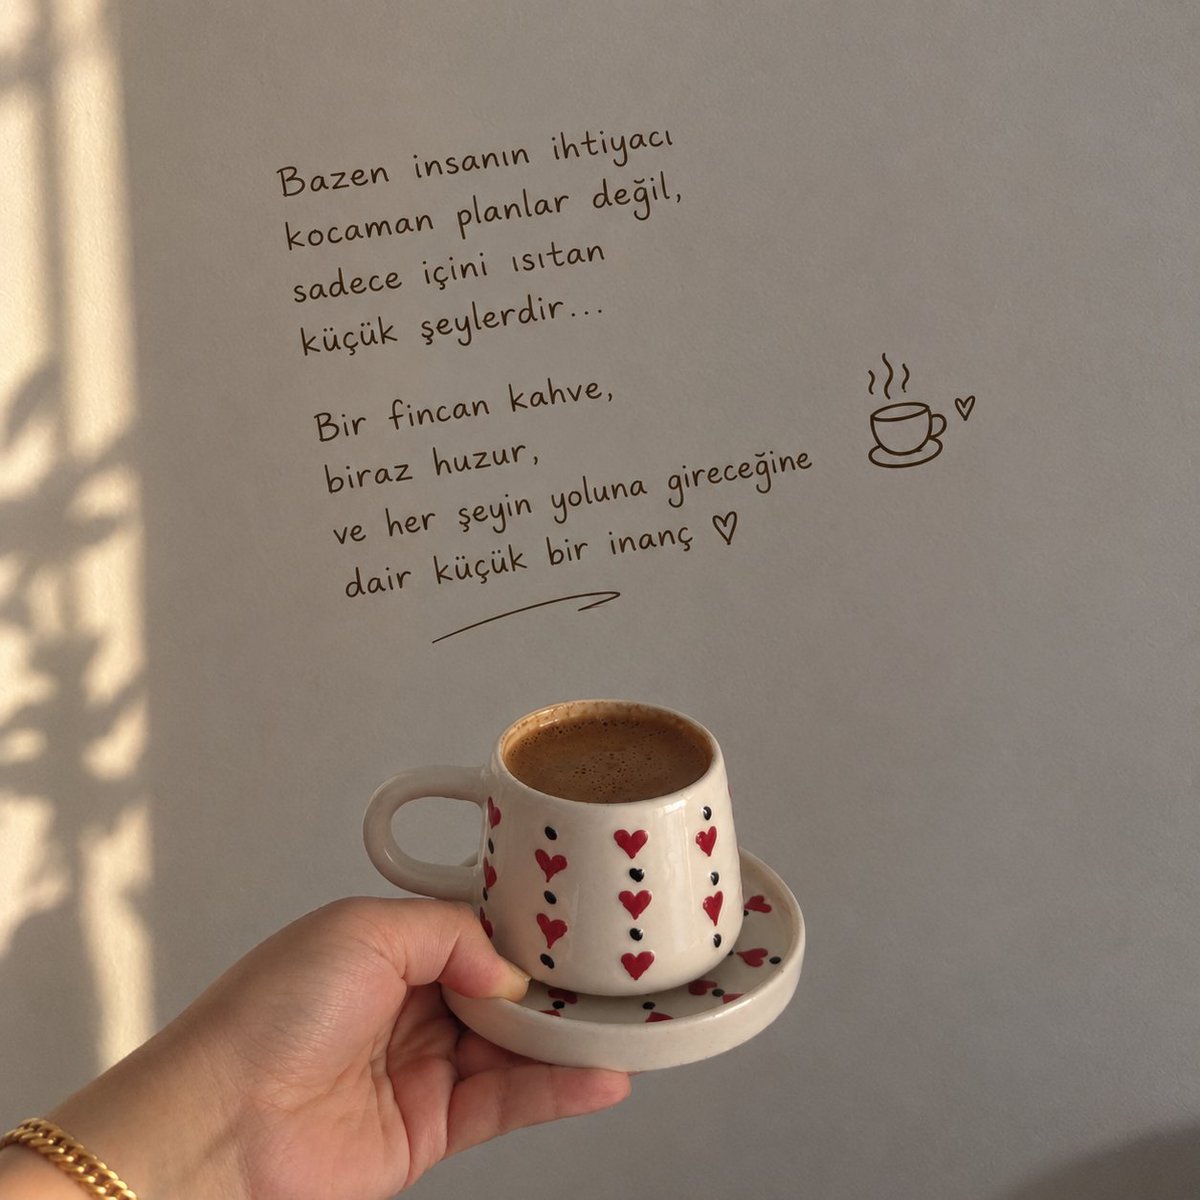 Bazen insanın ihtiyacı
kocaman planlar değil,
sadece içini ısıtan
küçük şeylerdir...
Bir fincan kahve,
biraz huzur,
ve her şeyin yoluna gireceğine
dair küçük bir inanç ♡